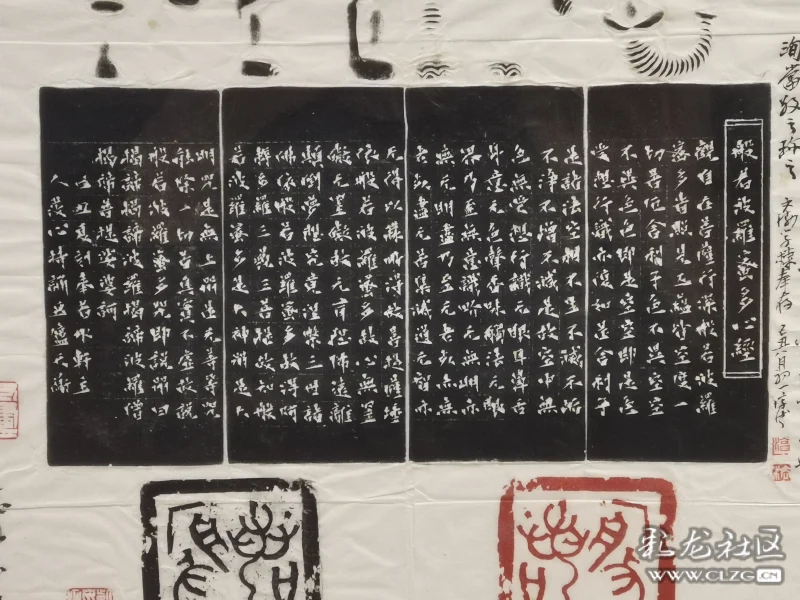 般若波羅蜜多心經
觀自在菩薩行深般若波羅
蜜多時照見五蘊皆空度一
切苦厄舍利子色不異空空
不異色色即是空空即是色
受想行識亦復如是舍利子
是諸法空相不生不滅不垢
不淨不增不減是故空中無
色無受想行識无眼耳鼻舌
身意无色聲香味觸法无眼
界乃至無意識界无無明亦
無无明盡乃至无老死亦無
老死盡无苦集滅道无智亦
无得以無所得故菩提薩埵
依般若波羅蜜多故心無罣
礙无罣礙故无有恐怖遠離
顛倒夢想究竟涅槃三世諸
佛依般若波羅蜜多故得阿
耨多羅三藐三菩提故知般
若波羅蜜多是大神咒是大
明咒是無上咒是无等等咒
能除一切苦真實不虛故說
般若波羅蜜多咒即說咒曰
揭諦揭諦波羅揭諦波羅僧
揭諦菩提娑婆訶
丑夏刻軒主
人發心持誦
彩龙社区
WWW.CLZG.CN